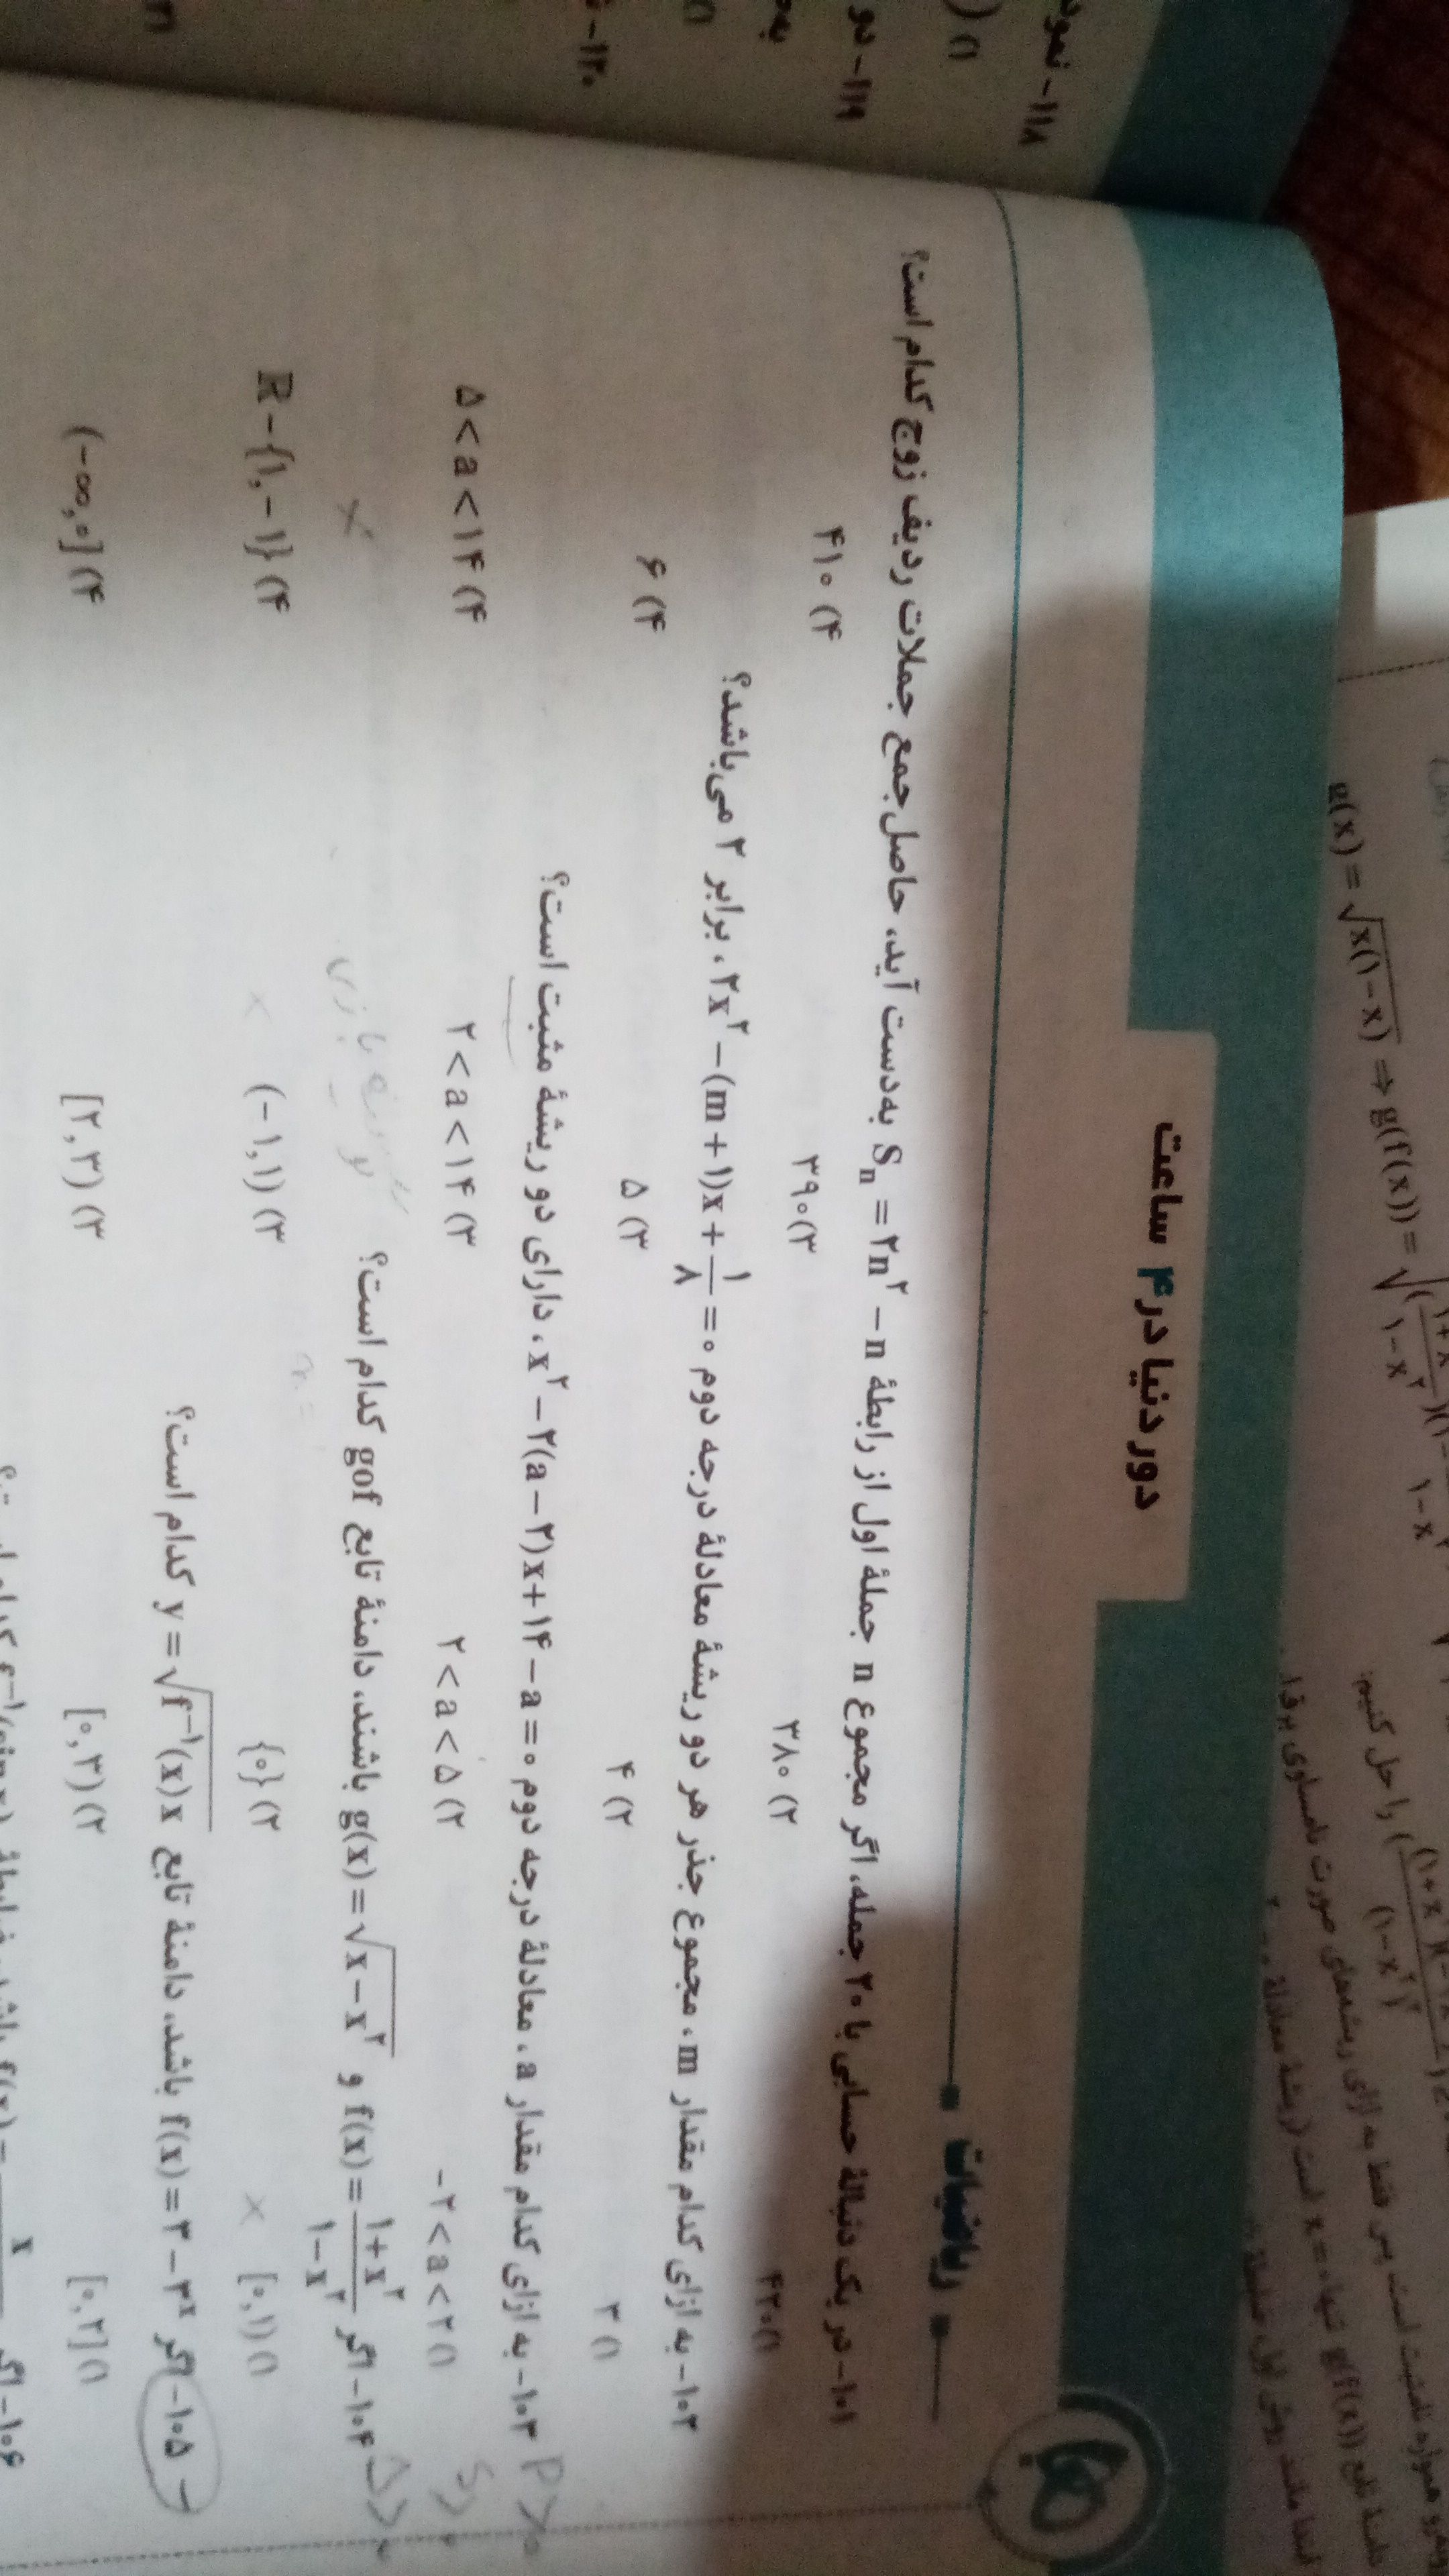 دور دنیا در ۴ ساعت
ریاضیات
۱۰۱- در یک دنبالهٔ حسابی با ۲۰ جمله، اگر مجموع n جملهٔ اول از رابطهٔ Sₙ = ۲n² − n به‌دست آید، حاصل‌جمع جملات ردیف زوج کدام است؟
۱) ۴۲۰ ۲) ۳۸۰ ۳) ۳۹۰ ۴) ۴۱۰
۱۰۲- به ازای کدام مقدار m، مجموع جذر هر دو ریشهٔ معادلهٔ درجه دوم ۲x² − (m + ۱)x + ۱/۸ = ۰، برابر ۲ می‌باشد؟
۱) ۳ ۲) ۴ ۳) ۵ ۴) ۶
۱۰۳- به ازای کدام مقدار a، معادلهٔ درجه دوم x² − ۲(a − ۲)x + ۱۴ − a = ۰، دارای دو ریشهٔ مثبت است؟
۱) −۲ < a < ۲ ۲) ۲ < a < ۵ ۳) ۲ < a < ۱۴ ۴) ۵ < a < ۱۴
۱۰۴- اگر f(x) = (۱+x²)/(۱−x²) و g(x) = √(x − x²) باشند، دامنهٔ تابع gof کدام است؟
۱) [۰,۱) ۲) {۰} ۳) (−۱,۱) ۴) R −{۱,−۱}
۱۰۵- اگر f(x) = ۳ − ۳ˣ باشد، دامنهٔ تابع y = √(f⁻¹(x)x) کدام است؟
۱) [۰,۲] ۲) [۰,۳) ۳) [۲,۳) ۴) (−∞,۰]
۱۰۶- اگر
۱۱۸- نمود
۱۱۹- دو
۱۲۰-
g(x) = √(x(۱−x)) ⇒ g(f(x)) =
را حل کنیم: